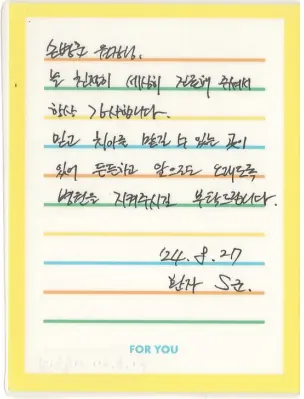 손병준 원장님.
늘 친절히 세심히 진료해 주셔서
항상 감사합니다.
믿고 치아를 맡길 수 있는 곳이
있어 든든하고 앞으로도 오래도록
병원을 지켜주시길 부탁드립니다.
'24. 8. 27
환자
FOR YOU